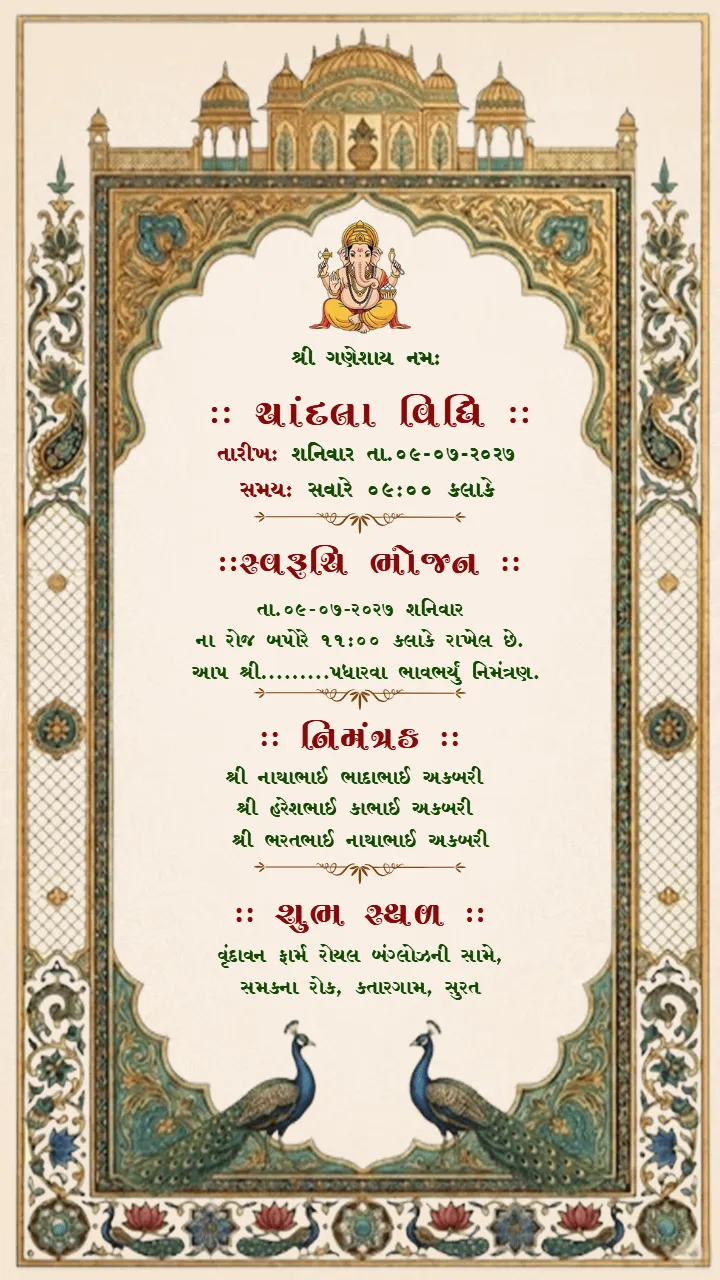 શ્રી ગણેશાય નમઃ
:: ચાંદલા વિધિ ::
તારીખઃ શનિવાર તા.૦૯-૦૭-૨૦૨૭
સમયઃ સવારે ૦૯:૦૦ કલાકે
::સ્વરૂચિ ભોજન ::
તા.૦૯-૦૭-૨૦૨૭ શનિવાર
ના રોજ બપોરે ૧૧:૦૦ કલાકે રાખેલ છે.
આપ શ્રી.........પધારવા ભાવભર્યું નિમંત્રણ.
:: નિમંત્રક ::
શ્રી નાથાભાઈ ભાદાભાઈ અકબરી
શ્રી હરેશભાઈ કાભાઈ અકબરી
શ્રી ભરતભાઈ નાથાભાઈ અકબરી
:: શુભ સ્થળ ::
વૃંદાવન ફાર્મ રોયલ બંગ્લોઝની સામે,
સમકના રોક, કતારગામ, સુરત